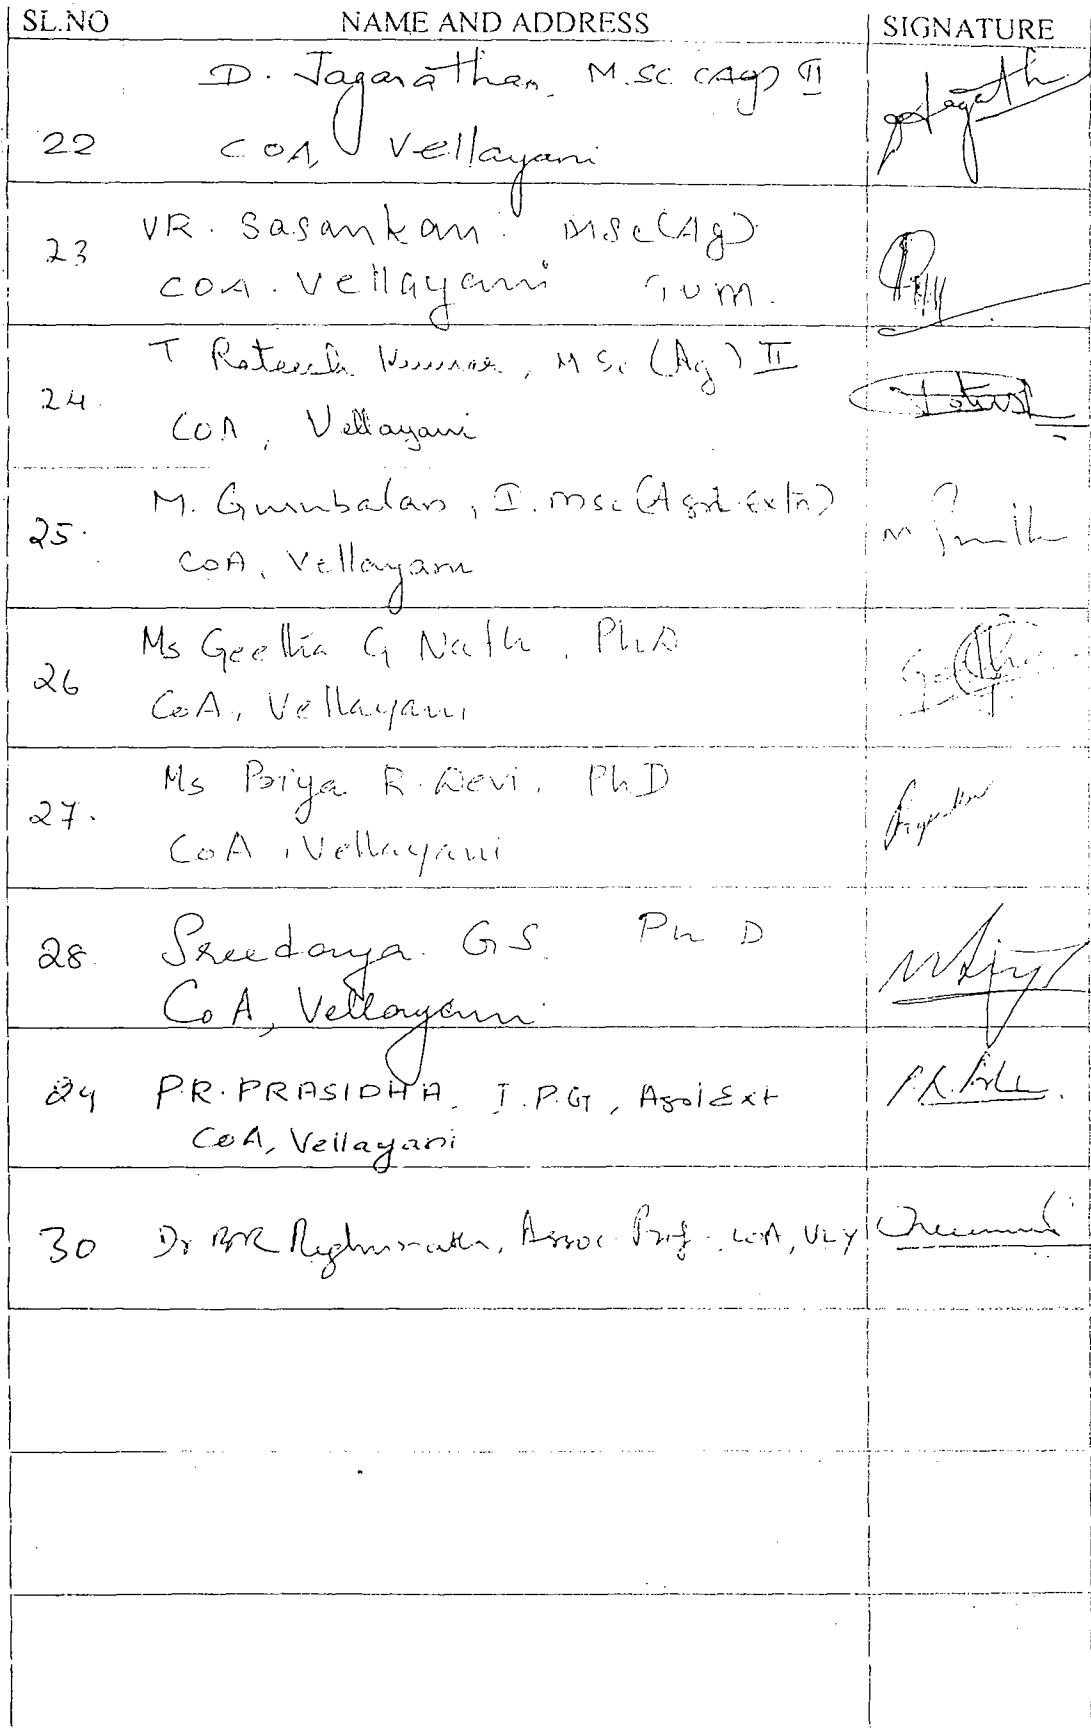 SL.NO NAME AND ADDRESS SIGNATURE
D. Jaganathan, M.SC (Ag) II
22 COA, Vellayani
VR. Sasankan. MSc(Ag)
23
COA. Vellayani TVM.
T Rateesh Kumar, M Sc (Ag) II
24.
COA, Vellayani
M. Gurubalan, I. MSc (Agrl. Extn)
25.
COA, Vellayani
Ms Geetha G Nath, PhD
26
CoA, Vellayani
Ms Priya R. Devi, PhD
27.
CoA, Vellayani
28. Sreedaya. G S. Ph D
CoA, Vellayani
29 P.R. PRASIDHA, I.P.G, Agrl Ext
CoA, Vellayani
30 Dr Reghunath, Assoc. Prof. CoA, VLY